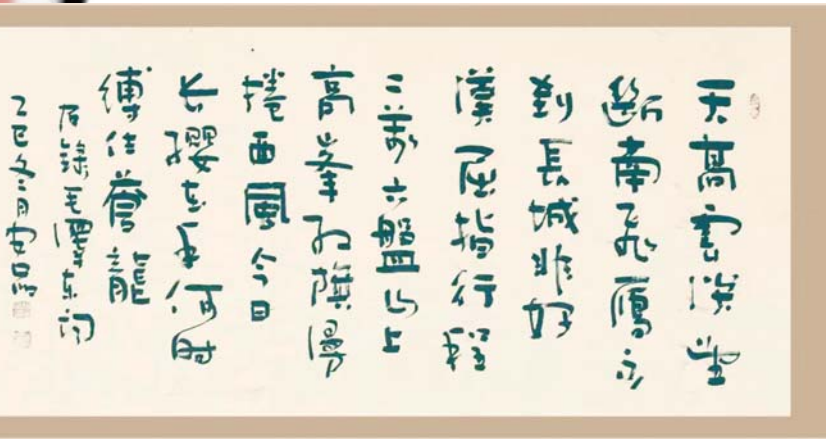 天高雲淡望
斷南飛雁不
到長城非好
漢屈指行程
二萬六盤山上
高峯紅旗漫
捲西風今日
长纓在手何时
縛住蒼龍
右錄毛澤东词
乙巳冬月